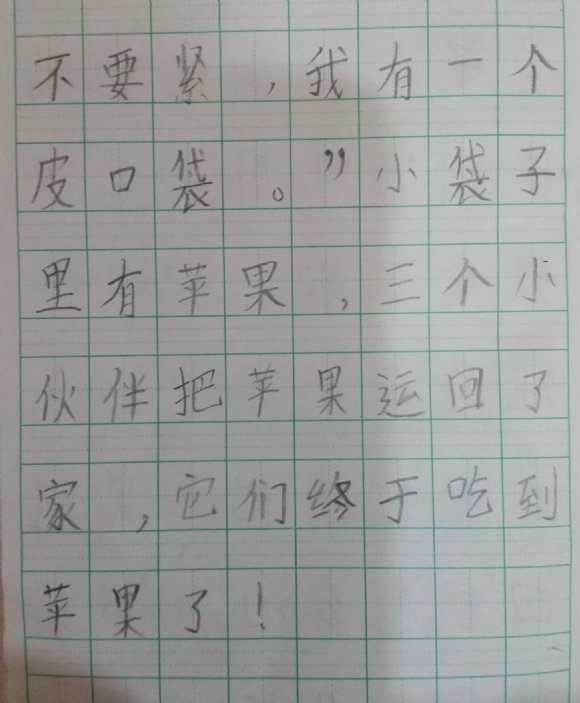 不要紧，我有一个
皮口袋。”小袋子
里有苹果，三个小
伙伴把苹果运回了
家，它们终于吃到
苹果了！